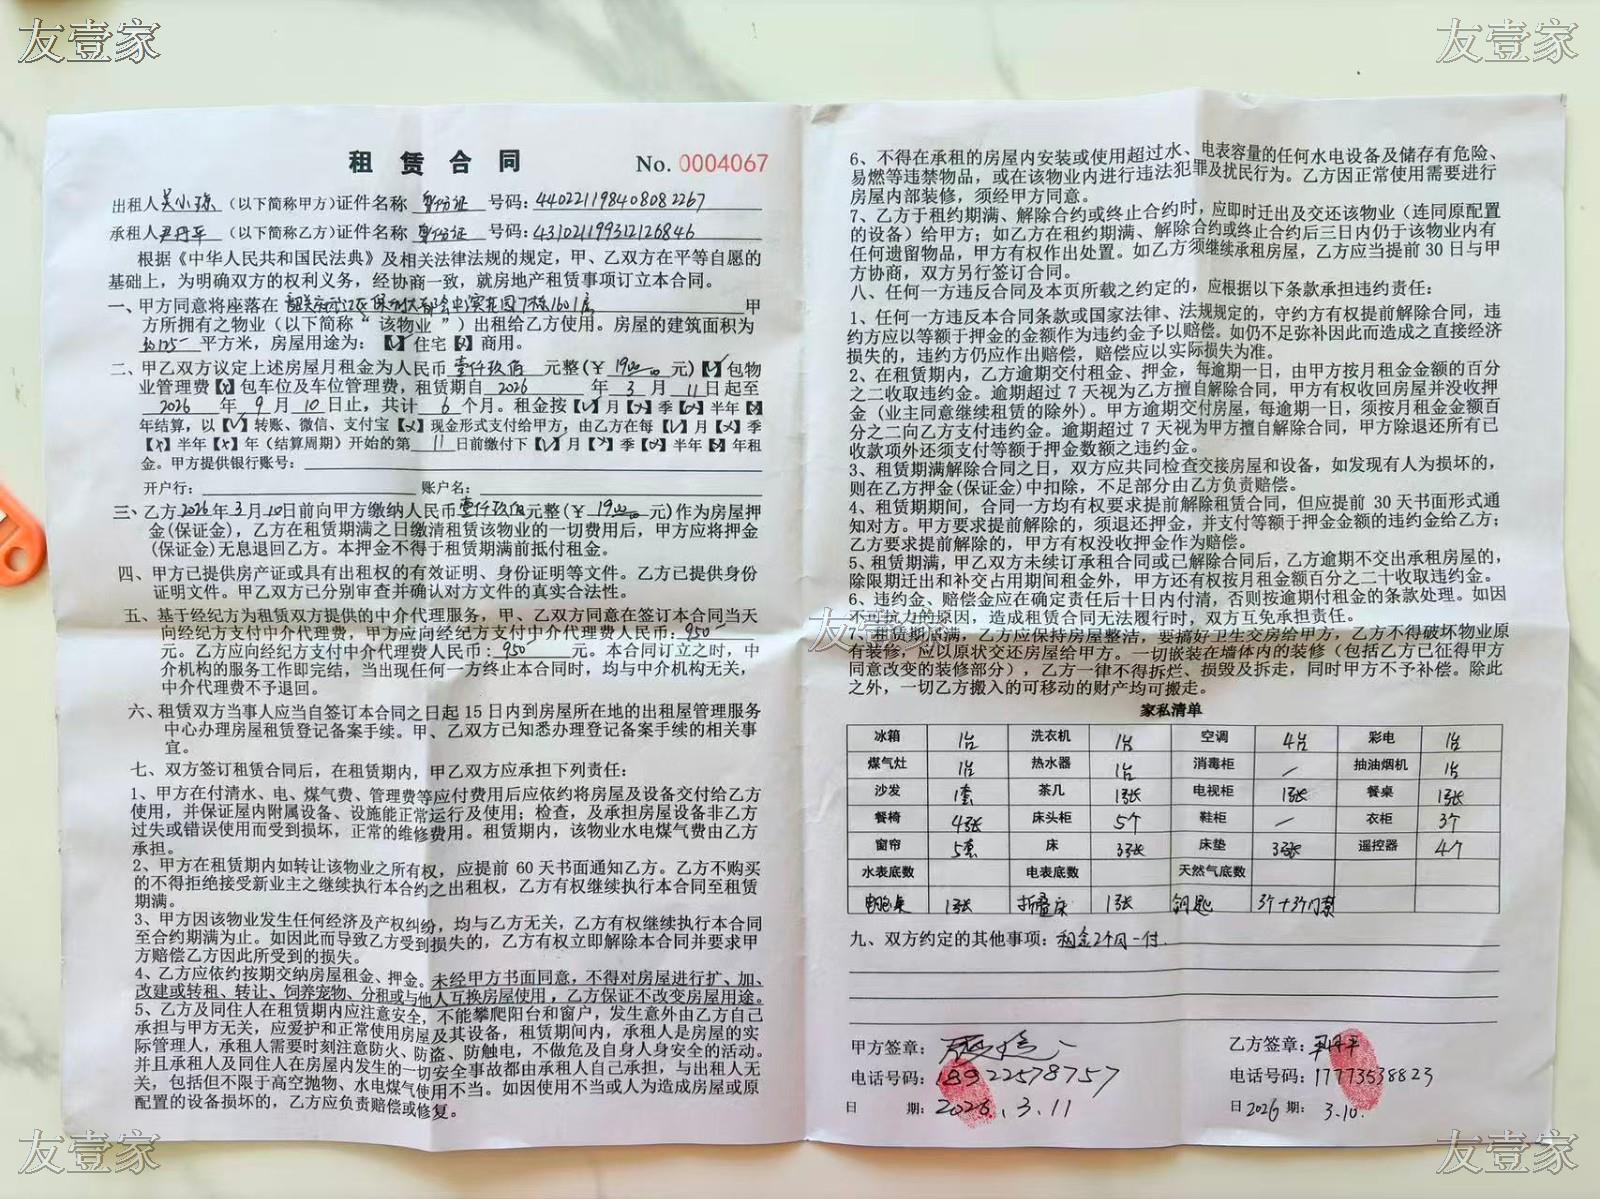 友壹家
友壹家
租赁合同 No. 0004067
出租人吴小琼（以下简称甲方）证件名称 身份证 号码：440221198408082267
承租人尹丹平（以下简称乙方）证件名称 身份证 号码：431021199312126846
根据《中华人民共和国民法典》及相关法律法规的规定，甲、乙双方在平等自愿的
基础上，为明确双方的权利义务，经协商一致，就房地产租赁事项订立本合同。
一、甲方同意将座落在 韶关市浈江区保利大都会 花园7栋1601房 甲
方所拥有之物业（以下简称“该物业”）出租给乙方使用。房屋的建筑面积为
约125 平方米，房屋用途为：【√】住宅【×】商用。
二、甲乙双方议定上述房屋月租金为人民币 壹仟玖佰 元整（￥ 1900.00 元）【√】包物
业管理费【×】包车位及车位管理费，租赁期自 2026 年 3 月 11 日起至
2026 年 9 月 10 日止，共计 6 个月。租金按【√】月【×】季【×】半年【×】
年结算，以【√】转账、微信、支付宝【×】现金形式支付给甲方，由乙方在每【√】月【×】季
【×】半年【×】年（结算周期）开始的第 11 日前缴付下【√】月【×】季【×】半年【×】年租
金。甲方提供银行账号：
开户行： 账户名：
三、乙方2026年3月10日前向甲方缴纳人民币壹仟玖佰元整（￥ 1900.00 元）作为房屋押
金(保证金)，乙方在租赁期满之日缴清租赁该物业的一切费用后，甲方应将押金
(保证金)无息退回乙方。本押金不得于租赁期满前抵付租金。
四、甲方已提供房产证或具有出租权的有效证明、身份证明等文件。乙方已提供身份
证明文件。甲乙双方已分别审查并确认对方文件的真实合法性。
五、基于经纪方为租赁双方提供的中介代理服务，甲、乙双方同意在签订本合同当天
向经纪方支付中介代理费，甲方应向经纪方支付中介代理费人民币：950
元。乙方应向经纪方支付中介代理费人民币：950 元。本合同订立之时，中
介机构的服务工作即完结，当出现任何一方终止本合同时，均与中介机构无关，
中介代理费不予退回。
六、租赁双方当事人应当自签订本合同之日起 15 日内到房屋所在地的出租屋管理服务
中心办理房屋租赁登记备案手续。甲、乙双方已知悉办理登记备案手续的相关事
宜。
七、双方签订租赁合同后，在租赁期内，甲乙双方应承担下列责任：
1、甲方在付清水、电、煤气费、管理费等应付费用后应依约将房屋及设备交付给乙方
使用，并保证屋内附属设备、设施能正常运行及使用；检查，及承担房屋设备非乙方
过失或错误使用而受到损坏，正常的维修费用。租赁期内，该物业水电煤气费由乙方
承担。
2、甲方在租赁期内如转让该物业之所有权，应提前 60 天书面通知乙方。乙方不购买
的不得拒绝接受新业主之继续执行本合约之出租权，乙方有权继续执行本合同至租赁
期满。
3、甲方因该物业发生任何经济及产权纠纷，均与乙方无关，乙方有权继续执行本合同
至合约期满为止。如因此而导致乙方受到损失的，乙方有权立即解除本合同并要求甲
方赔偿乙方因此所受到的损失。
4、乙方应依约按期交纳房屋租金、押金。未经甲方书面同意，不得对房屋进行扩、加、
改建或转租、转让、饲养宠物、分租或与他人互换房屋使用，乙方保证不改变房屋用途。
5、乙方及同住人在租赁期内应注意安全，不能攀爬阳台和窗户，发生意外由乙方自己
承担与甲方无关，应爱护和正常使用房屋及其设备，租赁期间内，承租人是房屋的实
际管理人，承租人需要时刻注意防火、防盗、防触电，不做危及自身人身安全的活动。
并且承租人及同住人在房屋内发生的一切安全事故都由承租人自己承担，与出租人无
关，包括但不限于高空抛物、水电煤气使用不当。如因使用不当或人为造成房屋或原
配置的设备损坏的，乙方应负责赔偿或修复。
6、不得在承租的房屋内安装或使用超过水、电表容量的任何水电设备及储存有危险、
易燃等违禁物品，或在该物业内进行违法犯罪及扰民行为。乙方因正常使用需要进行
房屋内部装修，须经甲方同意。
7、乙方于租约期满、解除合约或终止合约时，应即时迁出及交还该物业（连同原配置
的设备）给甲方；如乙方在租约期满、解除合约或终止合约后三日内仍于该物业内有
任何遗留物品，甲方有权作出处置。如乙方须继续承租房屋，乙方应当提前 30 日与甲
方协商，双方另行签订合同。
八、任何一方违反本合同及本页所载之约定的，应根据以下条款承担违约责任：
1、任何一方违反本合同条款或国家法律、法规规定的，守约方有权提前解除合同，违
约方应以等额于押金的金额作为违约金予以赔偿。如仍不足弥补因此而造成之直接经济
损失的，违约方仍应作出赔偿，赔偿应以实际损失为准。
2、在租赁期内，乙方逾期交付租金、押金，每逾期一日，由甲方按月租金金额的百分
之二收取违约金。逾期超过 7 天视为乙方擅自解除合同，甲方有权收回房屋并没收押
金（业主同意继续租赁的除外）。甲方逾期交付房屋，每逾期一日，须按月租金金额百
分之二向乙方支付违约金。逾期超过 7 天视为甲方擅自解除合同，甲方除退还所有已
收款项外还须支付等额于押金数额之违约金。
3、租赁期满解除合同之日，双方应共同检查交接房屋和设备，如发现有人为损坏的，
则在乙方押金(保证金)中扣除，不足部分由乙方负责赔偿。
4、租赁期期间，合同一方均有权要求提前解除租赁合同，但应提前 30 天书面形式通
知对方。甲方要求提前解除的，须退还押金，并支付等额于押金金额的违约金给乙方；
乙方要求提前解除的，甲方有权没收押金作为赔偿。
5、租赁期满，甲乙双方未续订承租合同或已解除合同后，乙方逾期不交出承租房屋的，
除限期迁出和补交占用期间租金外，甲方还有权按月租金额百分之二十收取违约金。
6、违约金、赔偿金应在确定责任后十日内付清，否则按逾期付租金的条款处理。如因
不可抗力的原因，造成租赁合同无法履行时，双方互免承担责任。
友壹家
7、租赁期届满，乙方应保持房屋整洁，要搞好卫生交房给甲方，乙方不得破坏物业原
有装修，应以原状交还房屋给甲方。一切嵌装在墙体内的装修（包括乙方已征得甲方
同意改变的装修部分），乙方一律不得拆烂、损毁及拆走，同时甲方不予补偿。除此
之外，一切乙方搬入的可移动的财产均可搬走。
家私清单
冰箱 1台 洗衣机 1台 空调 4台 彩电 1台
煤气灶 1台 热水器 1台 消毒柜 / 抽油烟机 1台
沙发 1套 茶几 1张 电视柜 1张 餐桌 1张
餐椅 4张 床头柜 5个 鞋柜 / 衣柜 3个
窗帘 5套 床 3张 床垫 3张 遥控器 4个
水表底数 电表底数 天然气底数
电脑桌 1张 折叠床 1张 钥匙 3个+3个门禁
九、双方约定的其他事项：租金2个月一付.
甲方签章： 乙方签章：尹丹平
电话号码：18922578757 电话号码：17773538823
日 期：2026.3.11 日2026期：3.10.
友壹家
友壹家